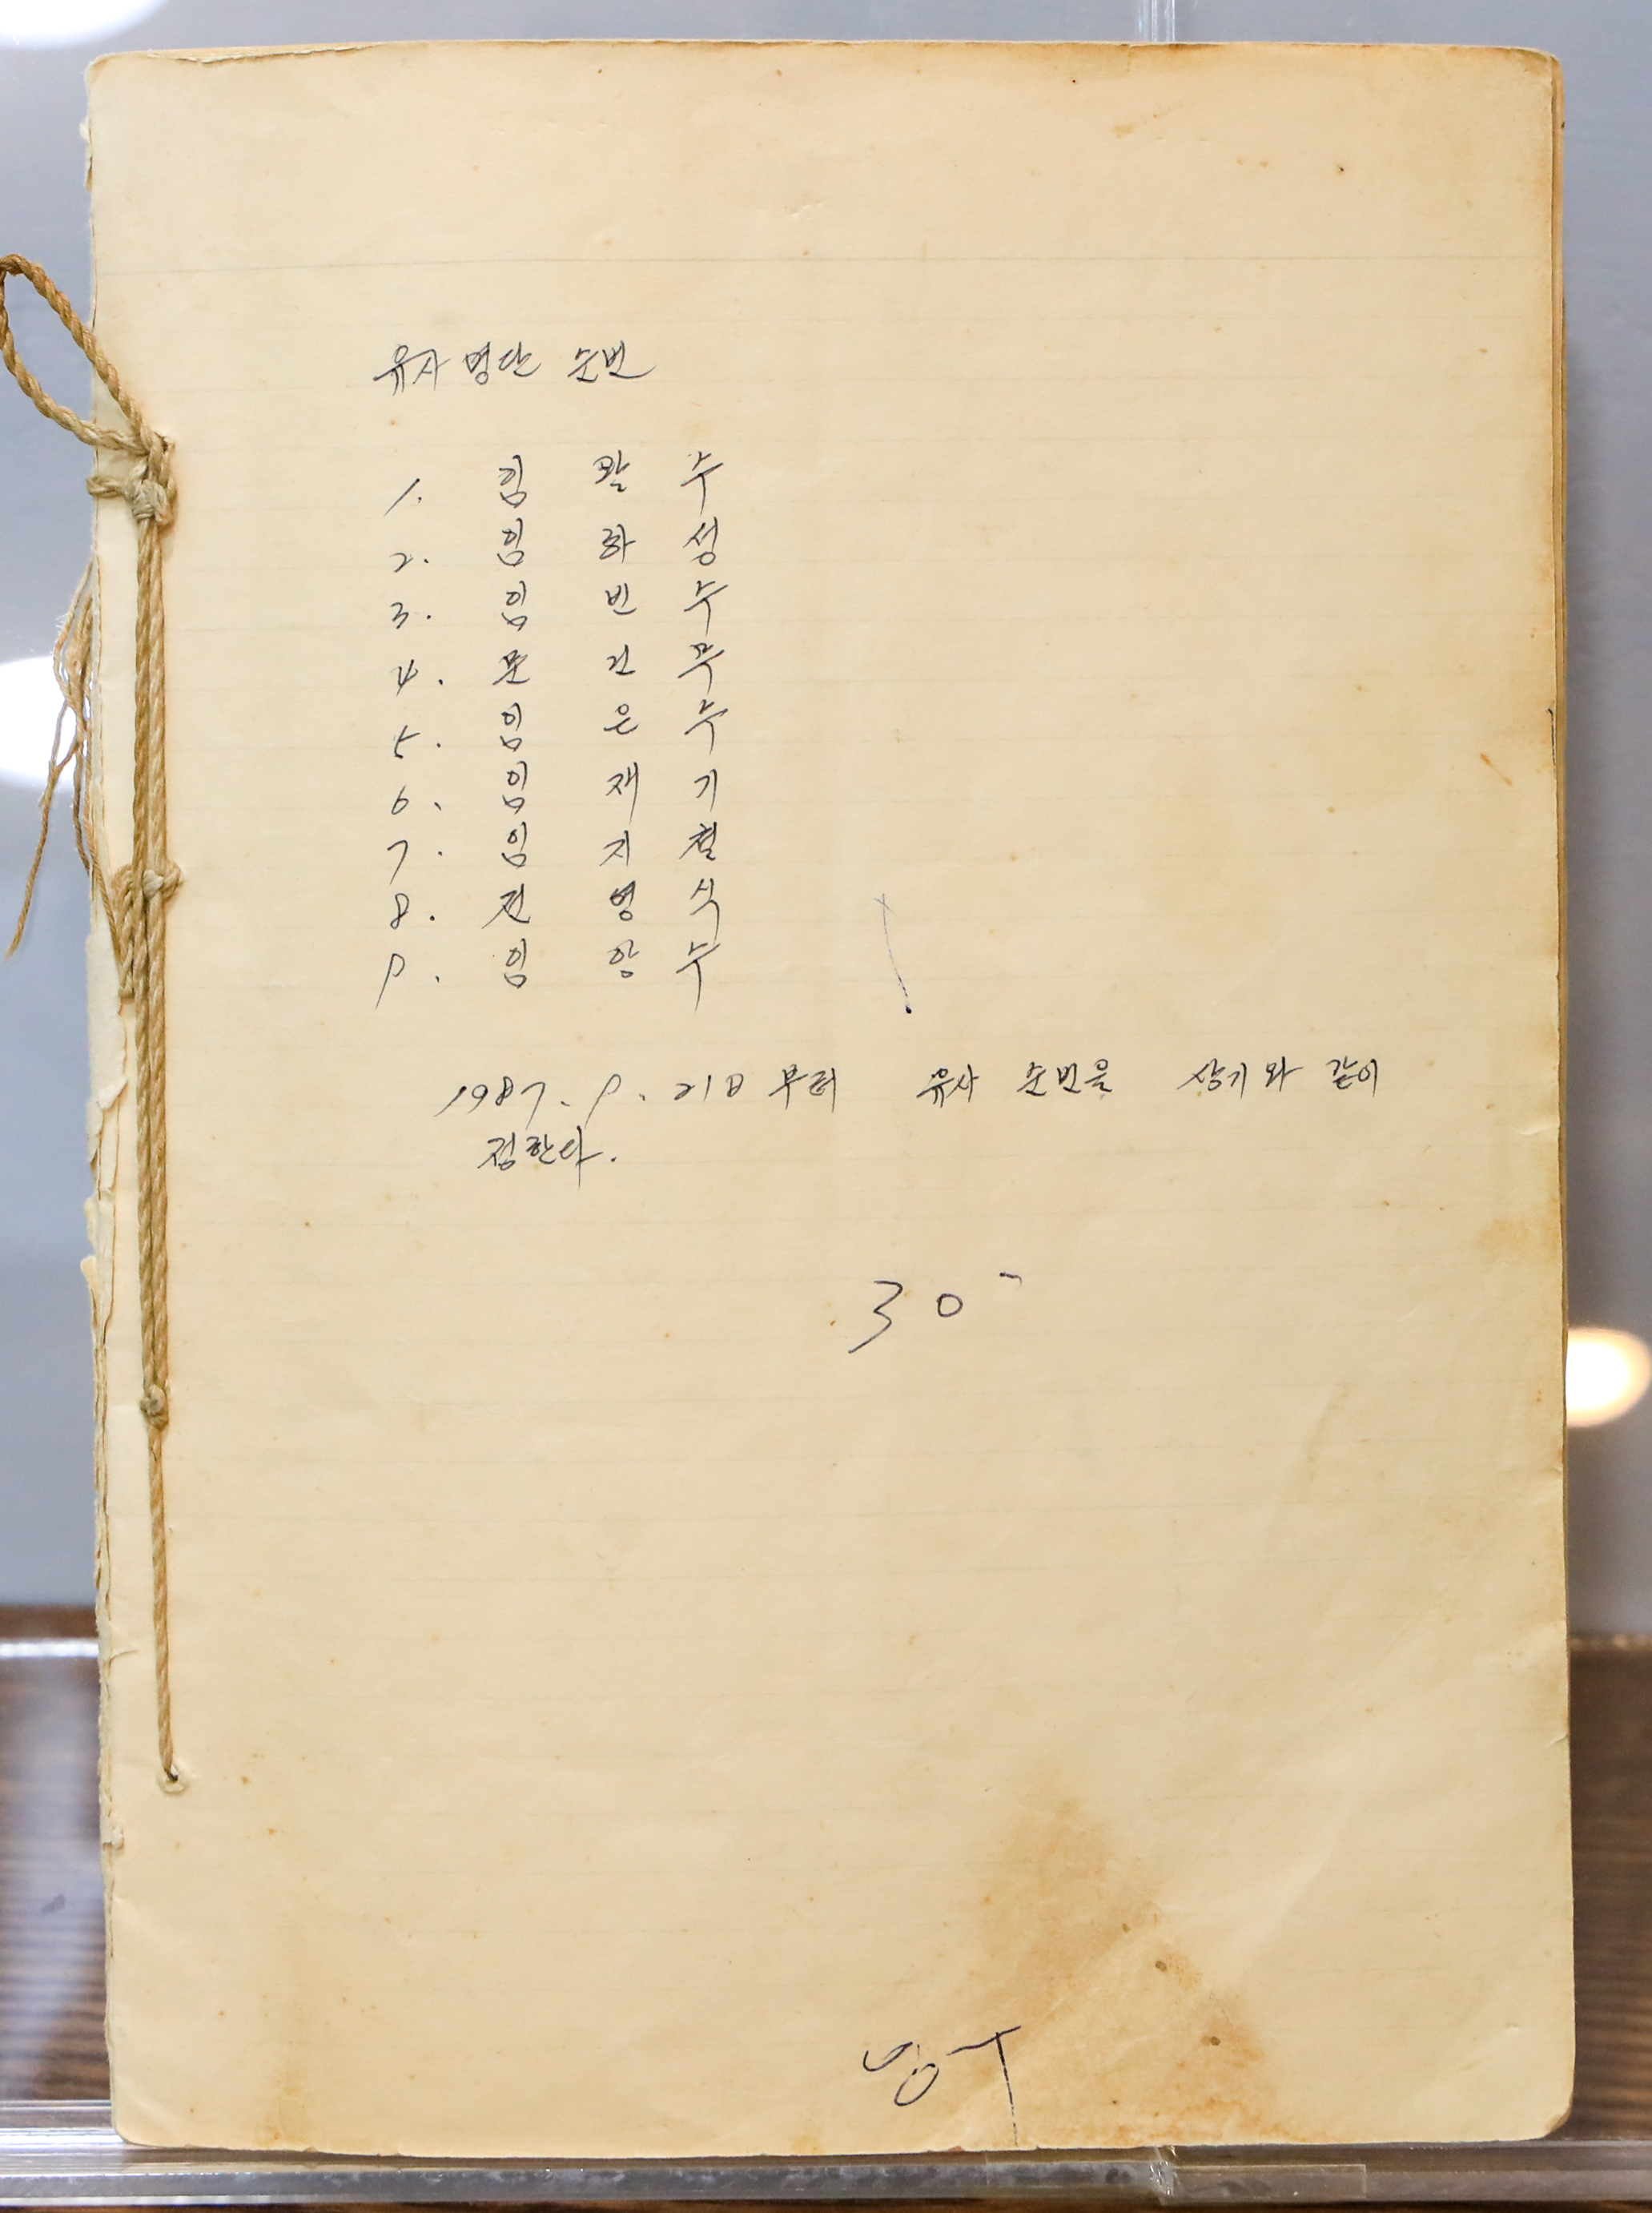 유사 명단 순번
1. 임 팔 수
2. 임 화 성
3. 임 빈 수
4. 문 건 무
5. 임 은 수
6. 임 재 기
7. 임 지 철
8. 전 병 식
9. 임 양 수
1987. 9. 21日 부터 유사 순번을 상기와 같이
정한다.
30